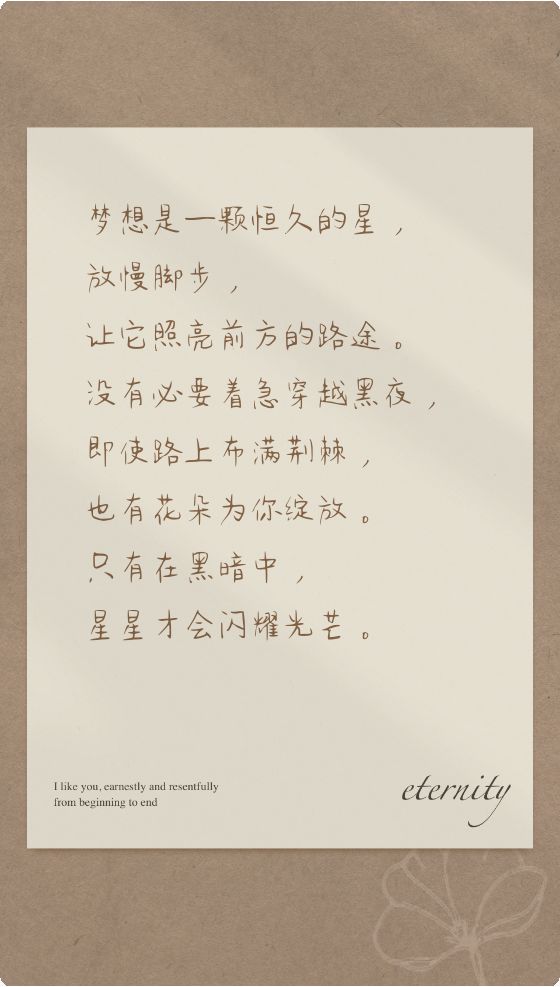 梦想是一颗恒久的星，
放慢脚步，
让它照亮前方的路途。
没有必要着急穿越黑夜，
即使路上布满荆棘，
也有花朵为你绽放。
只有在黑暗中，
星星才会闪耀光芒。
I like you, earnestly and resentfully
from beginning to end
eternity